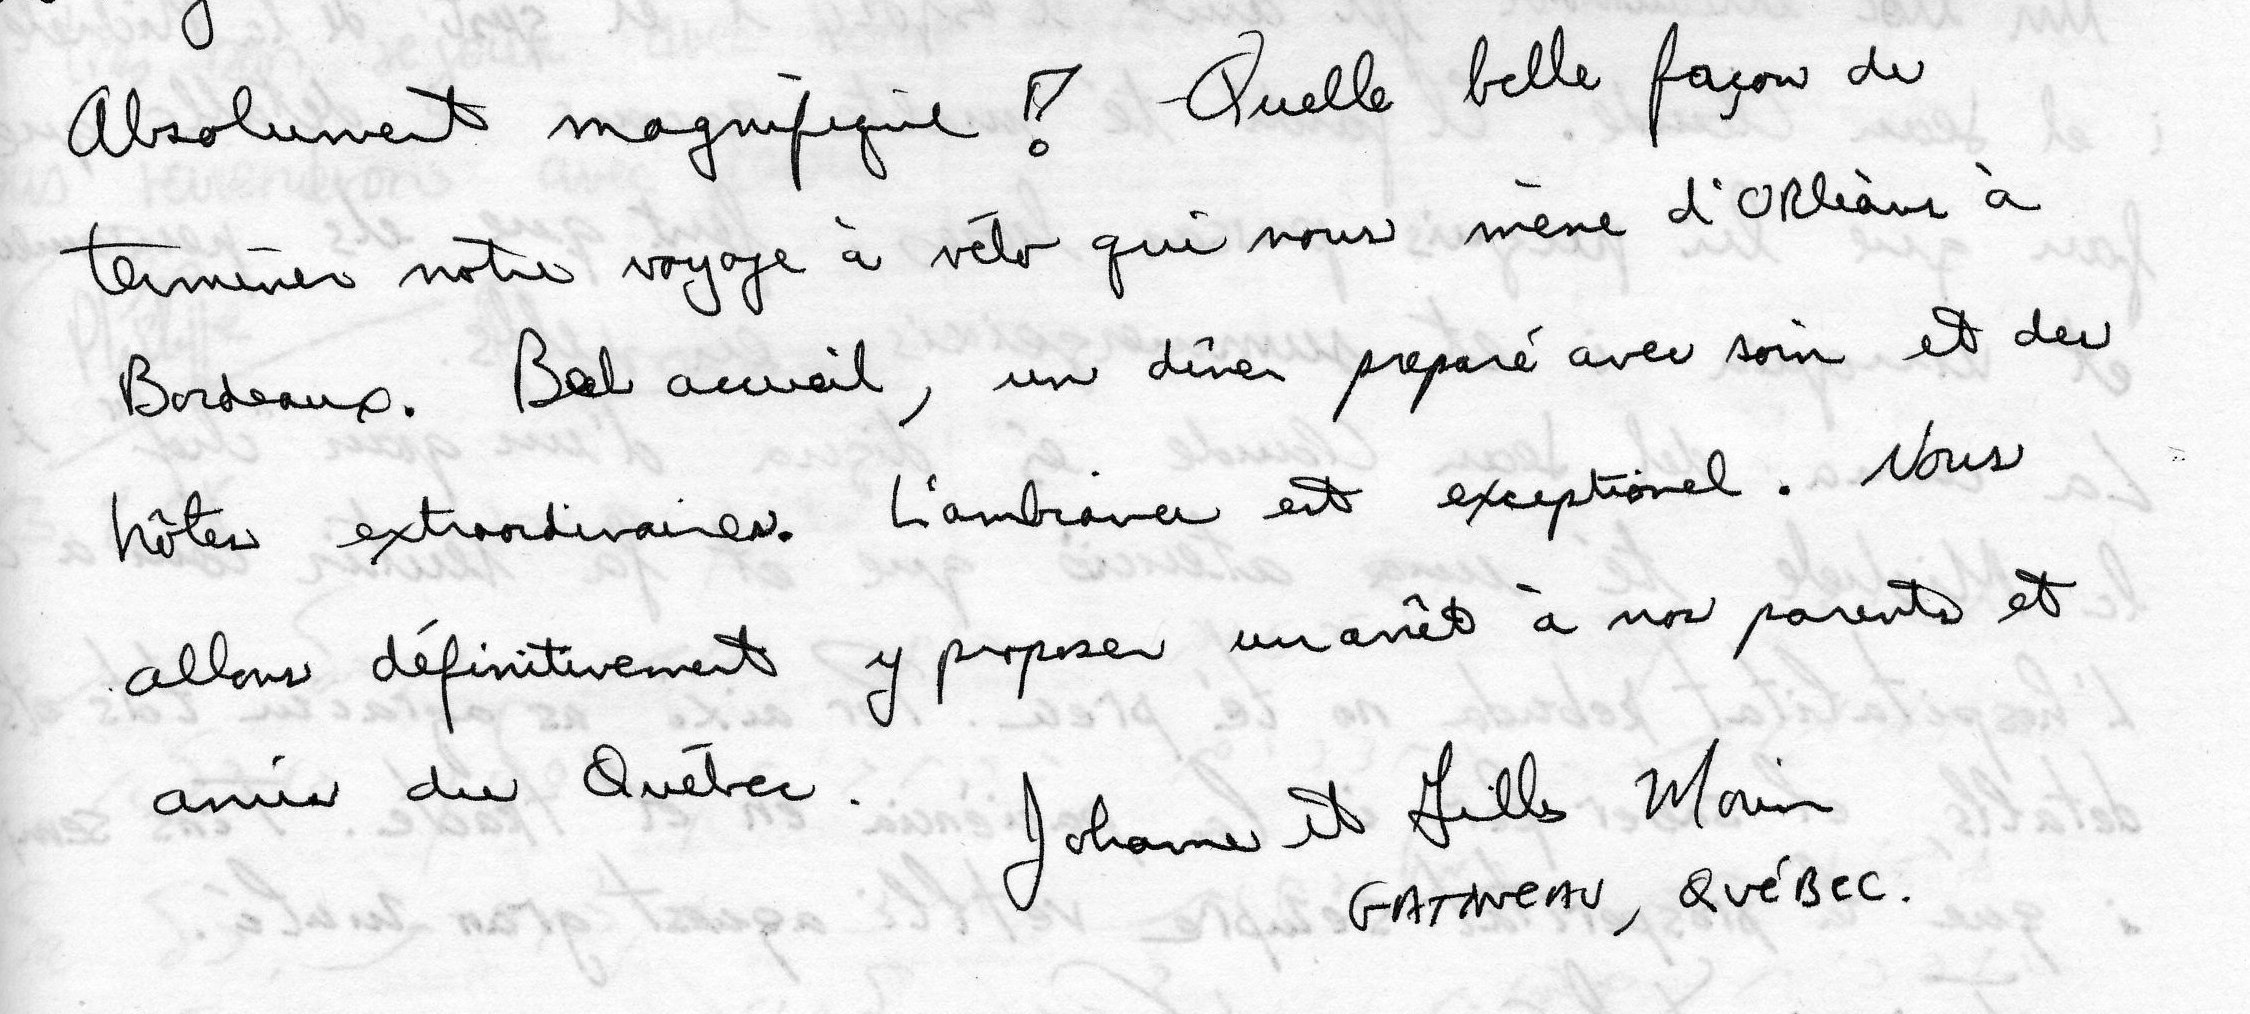 Absolument magnifique ! Quelle belle façon de
terminer notre voyage à vélo qui nous mène d'Orléans à
Bordeaux. Bel accueil, un dîner preparé avec soin et des
hôtes extraordinaires. L'ambiance est exceptionel. Nous
allons définitivement y proposer un arrêt à nos parents et
amis du Québec.
Johanne et Gilles Morin
GATINEAU, QUÉBEC.